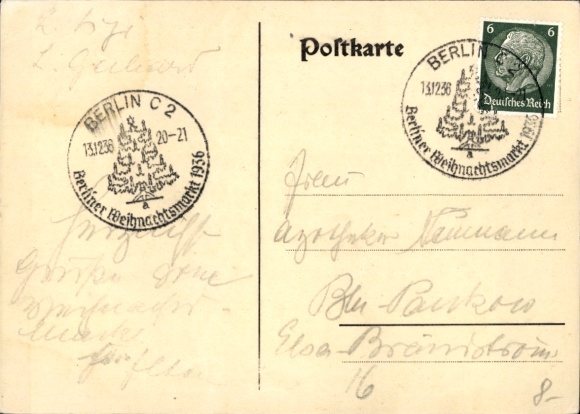 L. Liesi
L. Gerhard
Postkarte
6 6
Deutsches Reich
BERLIN C 2
13.12.36
Berliner Weihnachtsmarkt 1936
BERLIN C 2
13.12.36 20-21
Berliner Weihnachtsmarkt 1936
Frau
Apotheker Naumann
Bln Pankow
Elsa Brändström
16
8-
herzlichst
Grüße
Weihnachts-
markt